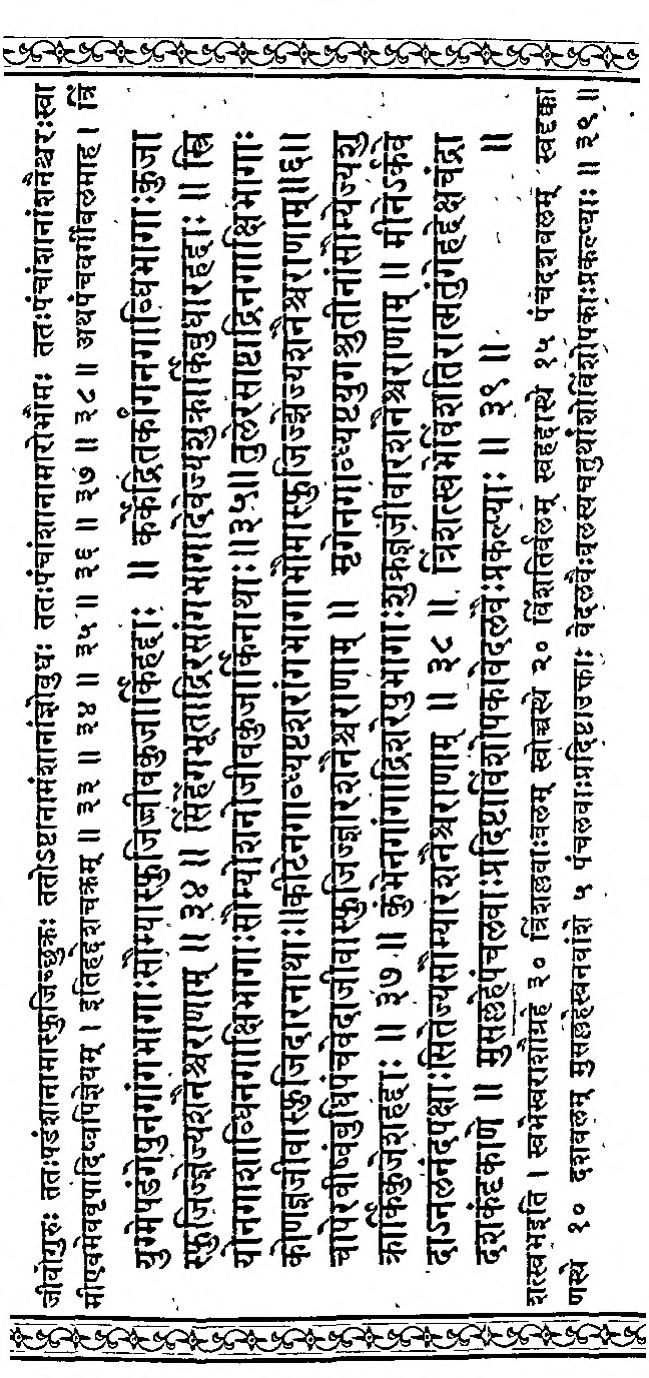 जीवोगुरुः ततःषडंशानामास्फुजिच्छुक्रः ततोऽष्टानामंशानांज्ञोबुधः ततःपंचांशानामारोभौमः ततःपंचांशानांशनैश्चरःस्वा
मीएवमेववृषादिष्वपिज्ञेयम् । इतिहद्देशचक्रम् ॥ ३३ ॥ ३४ ॥ ३५ ॥ ३६ ॥ ३७ ॥ ३८ ॥ अथपंचवर्गीबलमाह । त्रिं
युग्मेषडंगेषुनगांगभागाःसौम्यास्फुजिज्जीवकुजार्किहद्दाः ॥ कर्केद्रितर्कांगनगाब्धिभागाःकुजा
स्फुजिज्ज्ञेज्यशनैश्चराणाम् ॥ ३४ ॥ सिंहेंगभूताद्रिरसांगभागादेवेज्यशुक्रार्किबुधारहद्दाः ॥ स्त्रि
यांनगाशाब्धिनगाक्षिभागाःसौम्योशनोजीवकुजार्किनाथाः ॥३५॥ तुलेरसाष्टाद्रिनगाक्षिभागाः
कोणज्ञजीवास्फुजिदारनाथाः ॥ कीटेनगाब्ध्यष्टशरांगभागाभौमास्फुजिज्ज्ञेज्यशनैश्चराणाम् ॥३६॥
चापेरवीष्वंबुधिपंचवेदाजीवास्फुजिज्ज्ञारशनैश्चराणाम् ॥ मृगेनगाब्ध्यष्टयुगश्रुतीनांसौम्येज्यशु
क्रार्किकुजेशहद्दाः ॥ ३७ ॥ कुंभेनगांगाद्रिशरेषुभागाःशुक्रज्ञजीवारशनैश्चराणाम् ॥ मीनेऽर्कवे
दाऽनलनंदपक्षाःसितेज्यसौम्यारशनैश्चराणाम् ॥ ३८ ॥ त्रिंशत्स्वभेविंशतिरात्मतुंगेहद्देक्षचंद्रा
दशकंदृकाणे ॥ मुसल्लहेपंचलवाःप्रदिष्टाविंशोपकावेदलवैःप्रकल्प्याः ॥ ३९ ॥ ॥
शत्स्वभेइति । स्वभेस्वराशौग्रहे ३० त्रिंशल्लवाःबलम् स्वोच्चस्थे २० विंशतिर्बलम् स्वहद्दास्थे १५ पंचदशबलम् स्वदृक्का
णस्थे १० दशबलम् मुसल्लहेस्वनवांशे ५ पंचलवाःप्रदिष्टाउक्ताः वेदलवैःबलस्यचतुर्थांशोविंशोपकाःप्रकल्प्याः ॥ ३९ ॥